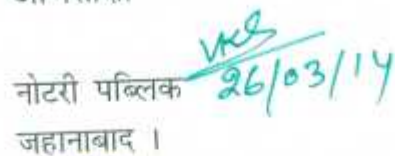 नोटरी पब्लिक 26/03/14
जहानाबाद ।